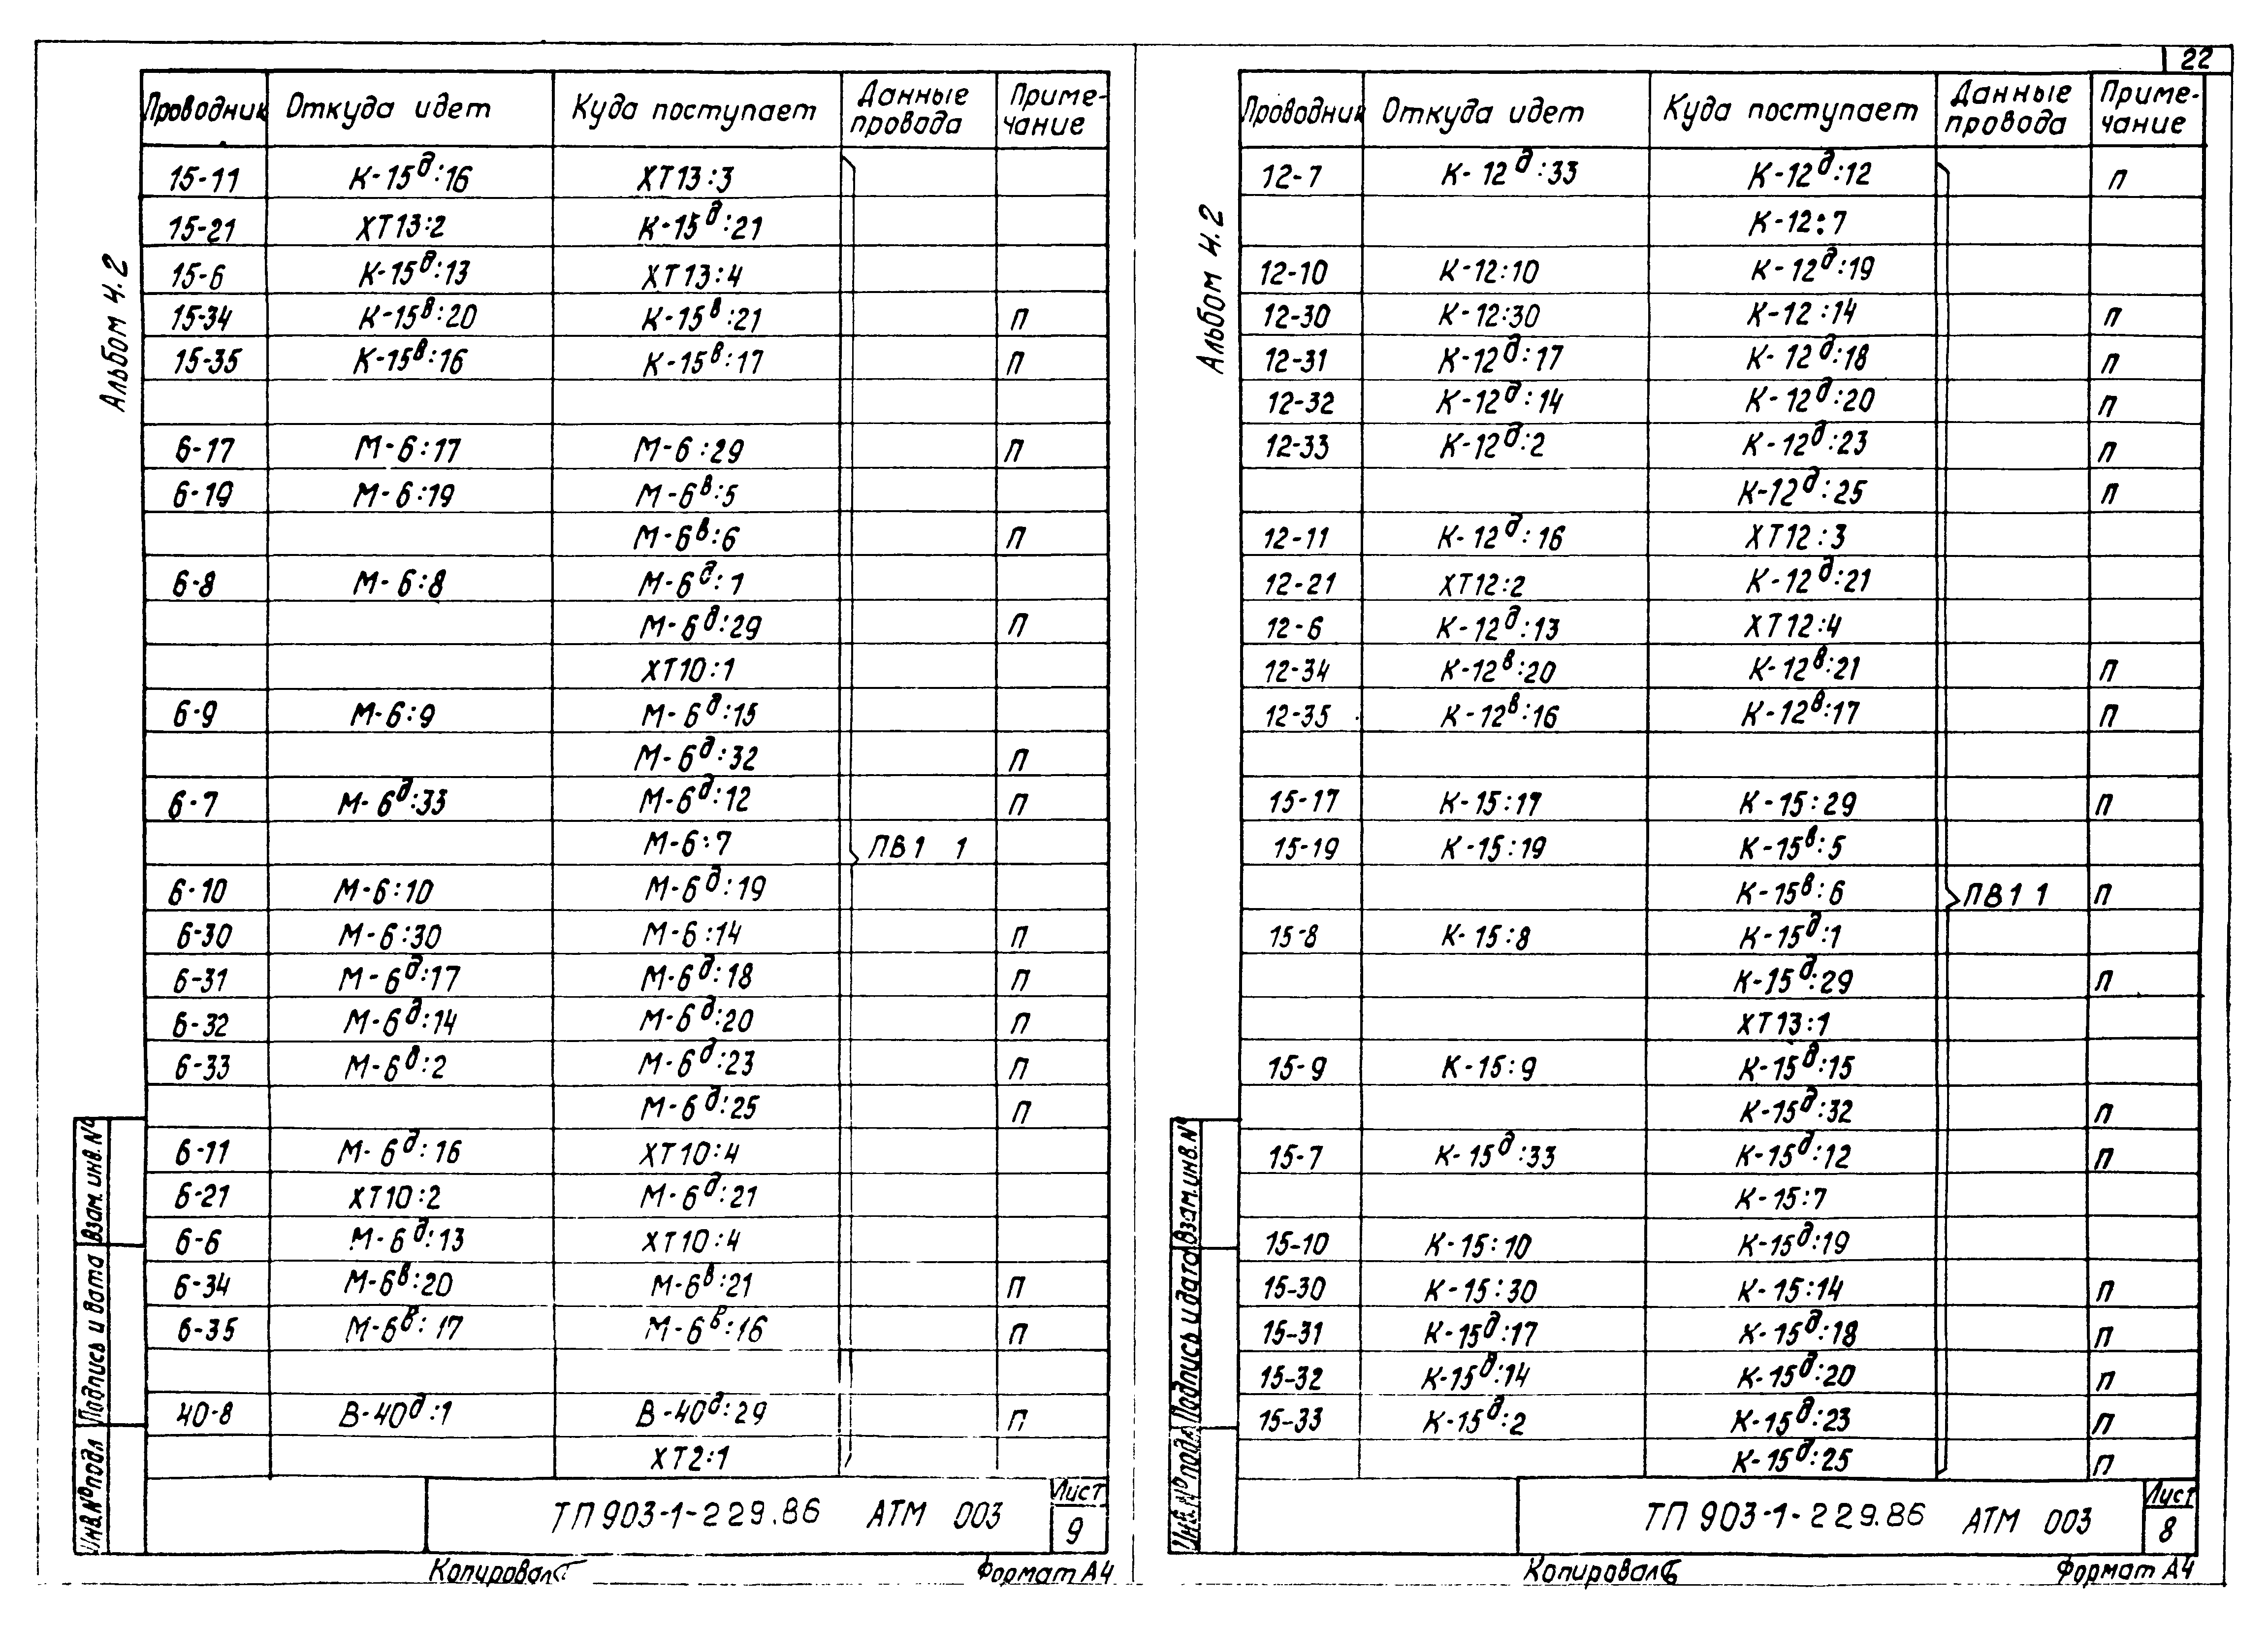 22
Альбом 4.2
Проводник Откуда идет Куда поступает Данные провода Приме-чание
15-11 К-15д:16 ХТ13:3
15-21 ХТ13:2 К-15д:21
15-6 К-15д:13 ХТ13:4
15-34 К-15в:20 К-15в:21 П
15-35 К-15в:16 К-15в:17 П
6-17 М-6:17 М-6:29 П
6-19 М-6:19 М-6в:5
М-6в:6 П
6-8 М-6:8 М-6д:1
М-6д:29 П
ХТ10:1
6-9 М-6:9 М-6д:15
М-6д:32 П
6-7 М-6д:33 М-6д:12 П
М-6:7 ПВ1 1
6-10 М-6:10 М-6д:19
6-30 М-6:30 М-6:14 П
6-31 М-6д:17 М-6д:18 П
6-32 М-6д:14 М-6д:20 П
6-33 М-6д:2 М-6д:23 П
М-6д:25 П
6-11 М-6д:16 ХТ10:4
6-21 ХТ10:2 М-6д:21
6-6 М-6д:13 ХТ10:4
6-34 М-6в:20 М-6в:21 П
6-35 М-6в:17 М-6в:16 П
40-8 В-40д:1 В-40д:29 П
ХТ2:1
Инв.№подл Подпись и дата Взам.инв.№
ТП 903-1-229.86 АТМ 003
Лист
9
Копировал
Формат А4
Альбом 4.2
Проводник Откуда идет Куда поступает Данные провода Приме-чание
12-7 К-12д:33 К-12д:12 П
К-12:7
12-10 К-12:10 К-12д:19
12-30 К-12:30 К-12:14 П
12-31 К-12д:17 К-12д:18 П
12-32 К-12д:14 К-12д:20 П
12-33 К-12д:2 К-12д:23 П
К-12д:25 П
12-11 К-12д:16 ХТ12:3
12-21 ХТ12:2 К-12д:21
12-6 К-12д:13 ХТ12:4
12-34 К-12в:20 К-12в:21 П
12-35 К-12в:16 К-12в:17 П
15-17 К-15:17 К-15:29 П
15-19 К-15:19 К-15в:5
К-15в:6 ПВ1 1 П
15-8 К-15:8 К-15д:1
К-15д:29 П
ХТ13:1
15-9 К-15:9 К-15д:15
К-15д:32 П
15-7 К-15д:33 К-15д:12 П
К-15:7
15-10 К-15:10 К-15д:19
15-30 К-15:30 К-15:14 П
15-31 К-15д:17 К-15д:18 П
15-32 К-15д:14 К-15д:20 П
15-33 К-15д:2 К-15д:23 П
К-15д:25 П
Инв.№подл Подпись и дата Взам.инв.№
ТП 903-1-229.86 АТМ 003
Лист
8
Копировал
Формат А4